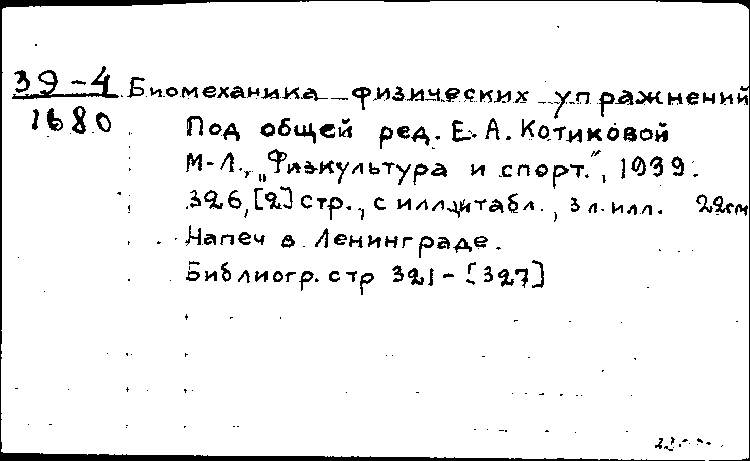 39-4 Биомеханика физических упражнений
1680 Под общей ред. Е. А. Котиковой
М-Л., „Физкультура и спорт.", 1939.
326, [2] стр., с илл.и табл., 3 л. илл. 22см
Напеч в Ленинграде.
Библиогр. стр 321-[327]